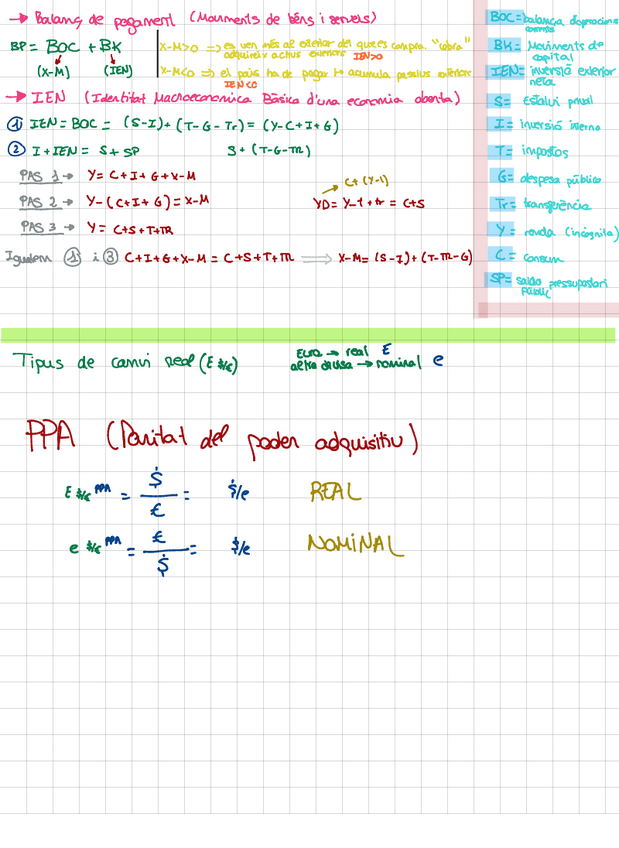 → Balanç de pagament (Moviments de béns i serveis)
BP = BOC + BK
(X-M) (IEN)
X-M>0 => es ven més al exterior del que es compra. "cobra"
adquireix actius exteriors IEN>0
X-M<0 => el país ha de pagar i acumula passius exteriors
IEN<0
→ IEN (Identitat Macroeconòmica Bàsica d'una economia oberta)
① IEN = BOC = (S-I) + (T-G-Tr) = (Y-C+I+G)
② I + IEN = S + SP S + (T-G-TR)
PAS 1 → Y = C+I+G+X-M
PAS 2 → Y-(C+I+G) = X-M
C+(Y-1)
YD = Y-T+tr = C+S
PAS 3 → Y = C+S+T+TR
Igualem ① i ③ C+I+G+X-M = C+S+T+TR ⟹ X-M = (S-I)+(T-TR-G)
BOC = balança d'operacions
BK = Moviments de
capital
IEN = inversió exterior
neta
S = Estalvi privat
I = inversió interna
T = impostos
G = despesa pública
Tr = transferència
Y = renda (incògnita)
C = consum
SP = saldo pressupostari
Públic
Tipus de canvi real (E $/€)
Euro → real E
altra divisa → nominal e
PPA (Paritat del poder adquisitiu)
E $/€ PPA = $/€ = $/e REAL
e $/€ PPA = €/$ = $/e NOMINAL